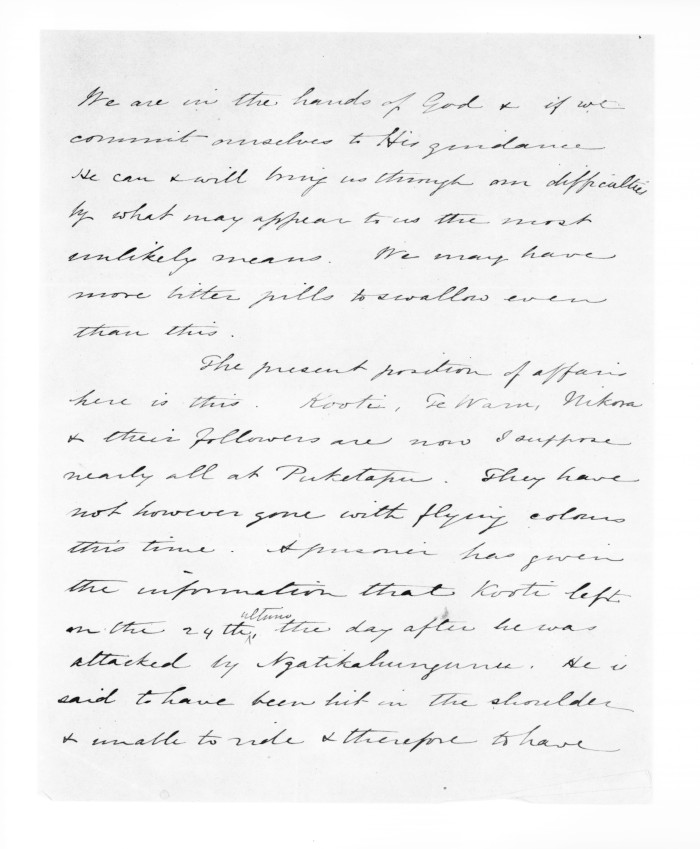 We are in the hands of God & if we
commit ourselves to His guidance
He can & will bring us through our difficulties
by what may appear to us the most
unlikely means. We may have
more bitter pills to swallow even
than this.
The present position of affairs
here is this. Kooti, Te Waru, Nikora
& their followers are now I suppose
nearly all at Puketapu. They have
not however gone with flying colours
this time. A prisoner has given
the information that Kooti left
ultimo
on the 24th, the day after he was
attacked by Ngatikahungunu. He is
said to have been hit in the shoulder
& unable to ride & therefore to have